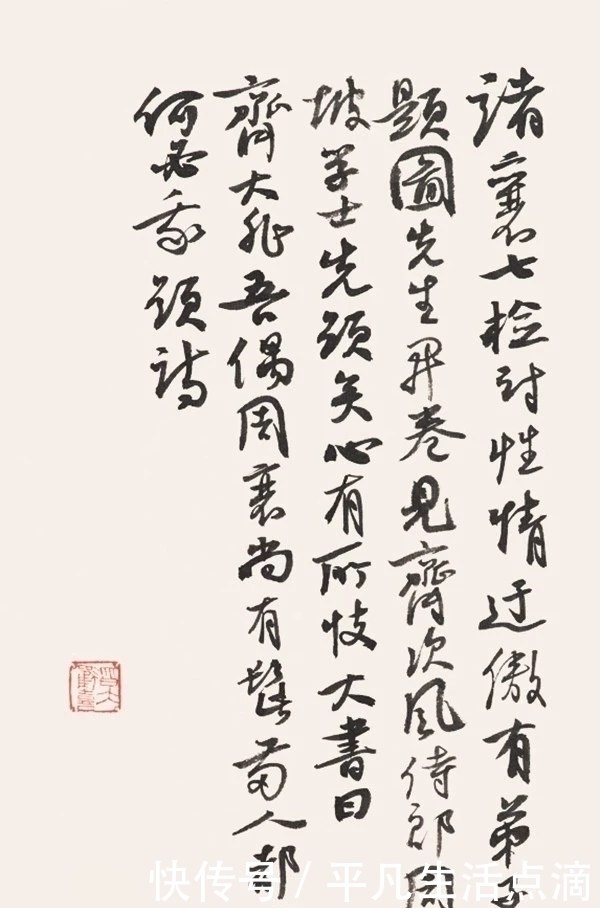 諸襄七檢討性情迂傲有弟
題圖先生開卷見齊次風侍郎周
坡學士先題矣心有所忮大書曰
齊大非吾偶周衰尚有髭兩人都
何必我題詩
快传号 / 平凡生活点滴